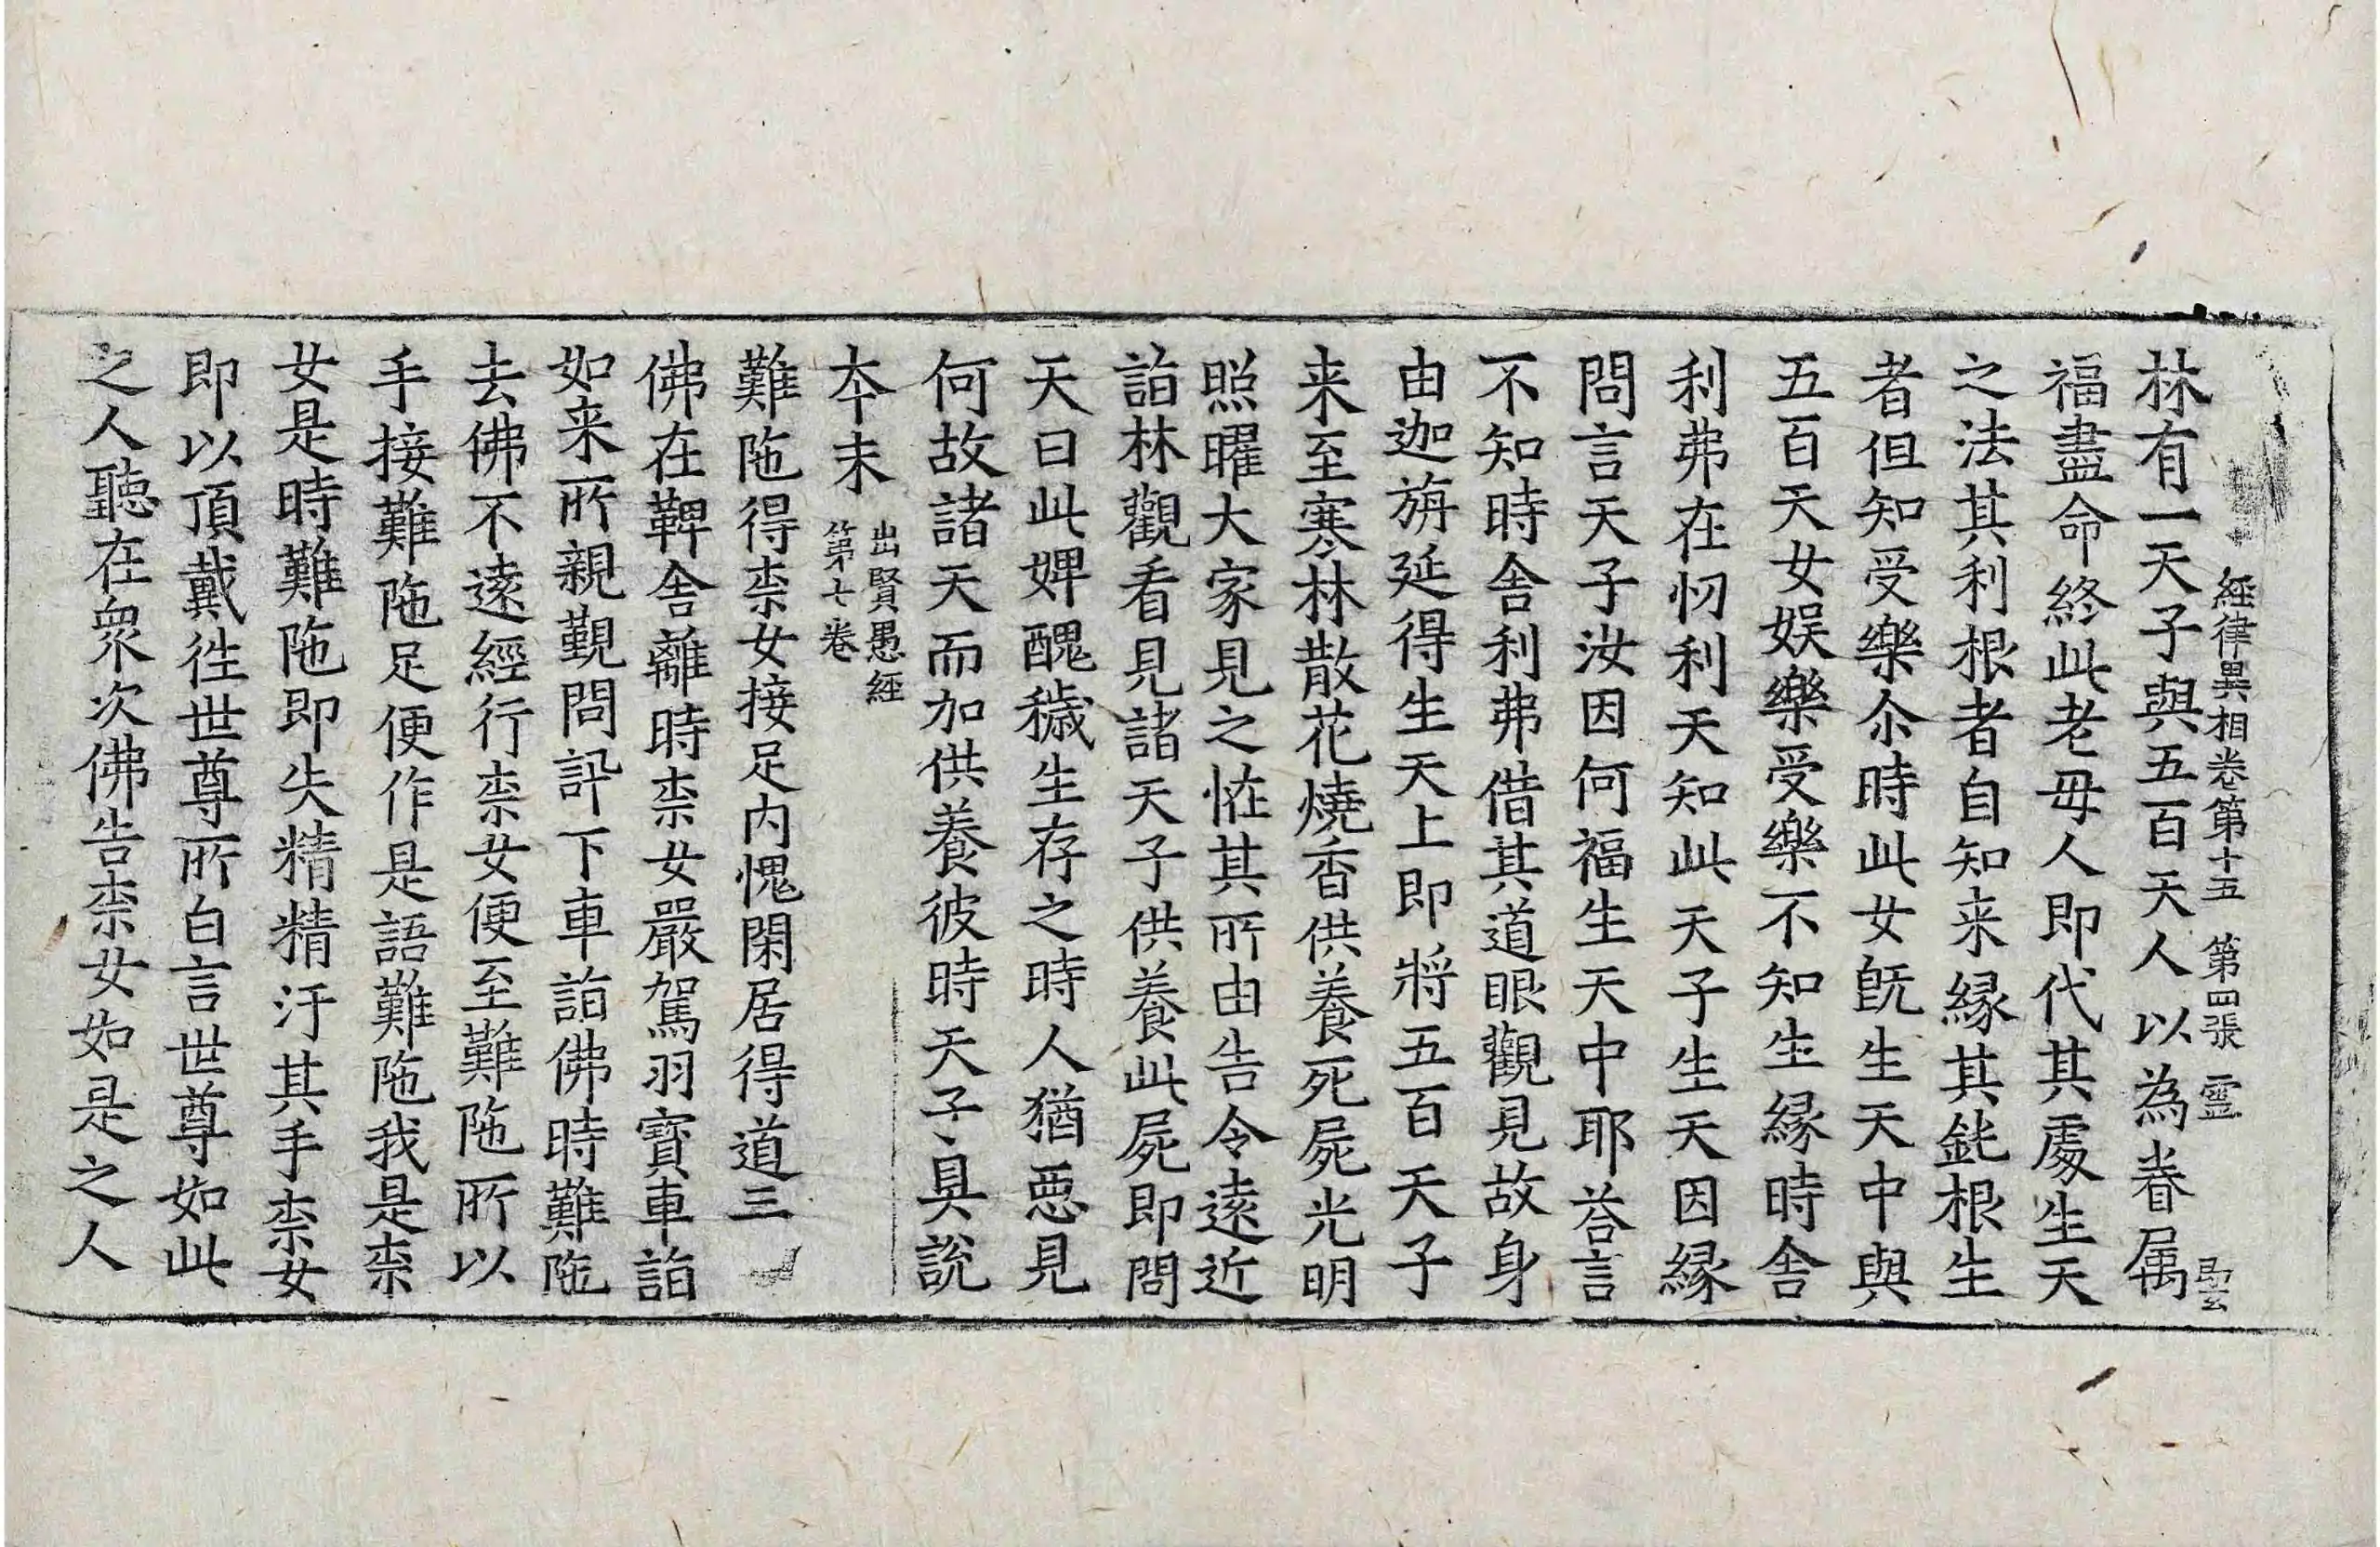 經律異相卷第十五　第四張　靈
林有一天子與五百天人以為眷属
福盡命終此老母人即代其處生天
之法其利根者自知来緣其鈍根生
者但知受樂尒時此女旣生天中與
五百天女娱樂受樂不知生緣時舎
利弗在忉利天知此天子生天因緣
問言天子汝因何福生天中耶荅言
不知時舎利弗借其道眼觀見故身
由迦旃延得生天上即將五百天子
来至寒林散花燒香供養死屍光明
照曜大家見之恠其所由告令遠近
詣林觀看見諸天子供養此屍即問
天曰此婢醜穢生存之時人猶惡見
何故諸天而加供養彼時天子具説
夲末　出賢愚經第七卷
難陁得柰女接足内愧閑居得道三
佛在鞞舎離時柰女嚴駕羽寳車詣
如来所親覲問訊下車詣佛時難陁
去佛不逺經行柰女便至難陁所以
手接難陁足便作是語難陁我是柰
女是時難陁即失精精汙其手柰女
即以頂戴徃世尊所白言世尊如此
之人聽在衆次佛告柰女如是之人